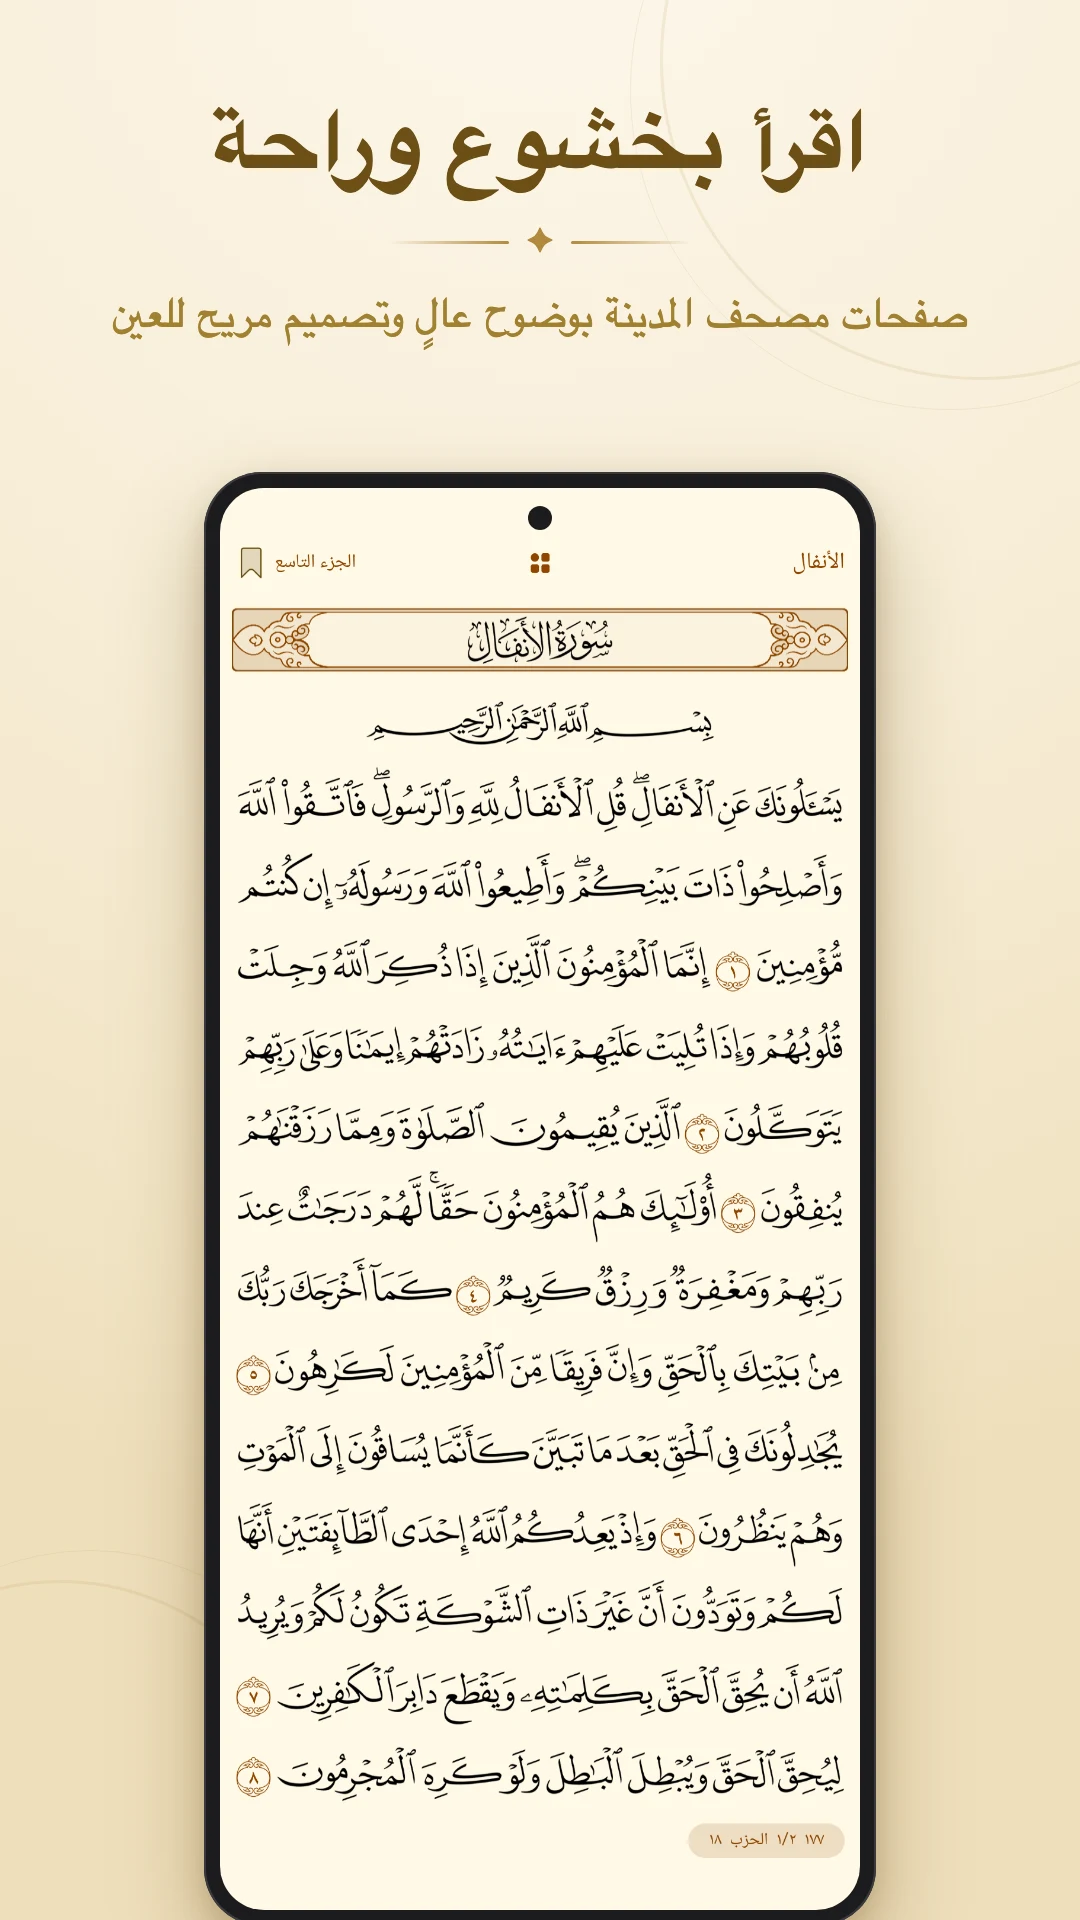 اقرأ بخشوع وراحة
صفحات مصحف المدينة بوضوح عالٍ وتصميم مريح للعين
الأنفال
الجزء التاسع
سُورَةُ الأَنفَالِ
بِسْمِ ٱللَّهِ ٱلرَّحْمَٰنِ ٱلرَّحِيمِ
يَسْـَٔلُونَكَ عَنِ ٱلْأَنفَالِۖ قُلِ ٱلْأَنفَالُ لِلَّهِ وَٱلرَّسُولِۖ فَٱتَّقُوا۟ ٱللَّهَ
وَأَصْلِحُوا۟ ذَاتَ بَيْنِكُمْۖ وَأَطِيعُوا۟ ٱللَّهَ وَرَسُولَهُۥٓ إِن كُنتُم
مُّؤْمِنِينَ ١ إِنَّمَا ٱلْمُؤْمِنُونَ ٱلَّذِينَ إِذَا ذُكِرَ ٱللَّهُ وَجِلَتْ
قُلُوبُهُمْ وَإِذَا تُلِيَتْ عَلَيْهِمْ ءَايَٰتُهُۥ زَادَتْهُمْ إِيمَٰنًا وَعَلَىٰ رَبِّهِمْ
يَتَوَكَّلُونَ ٢ ٱلَّذِينَ يُقِيمُونَ ٱلصَّلَوٰةَ وَمِمَّا رَزَقْنَٰهُمْ
يُنفِقُونَ ٣ أُو۟لَٰٓئِكَ هُمُ ٱلْمُؤْمِنُونَ حَقًّاۚ لَّهُمْ دَرَجَٰتٌ عِندَ
رَبِّهِمْ وَمَغْفِرَةٌ وَرِزْقٌ كَرِيمٌ ٤ كَمَآ أَخْرَجَكَ رَبُّكَ
مِنۢ بَيْتِكَ بِٱلْحَقِّ وَإِنَّ فَرِيقًا مِّنَ ٱلْمُؤْمِنِينَ لَكَٰرِهُونَ ٥
يُجَٰدِلُونَكَ فِى ٱلْحَقِّ بَعْدَ مَا تَبَيَّنَ كَأَنَّمَا يُسَاقُونَ إِلَى ٱلْمَوْتِ
وَهُمْ يَنظُرُونَ ٦ وَإِذْ يَعِدُكُمُ ٱللَّهُ إِحْدَى ٱلطَّآئِفَتَيْنِ أَنَّهَا
لَكُمْ وَتَوَدُّونَ أَنَّ غَيْرَ ذَاتِ ٱلشَّوْكَةِ تَكُونُ لَكُمْ وَيُرِيدُ
ٱللَّهُ أَن يُحِقَّ ٱلْحَقَّ بِكَلِمَٰتِهِۦ وَيَقْطَعَ دَابِرَ ٱلْكَٰفِرِينَ ٧
لِيُحِقَّ ٱلْحَقَّ وَيُبْطِلَ ٱلْبَٰطِلَ وَلَوْ كَرِهَ ٱلْمُجْرِمُونَ ٨
١٧٧ ١/٢ الحزب ١٨